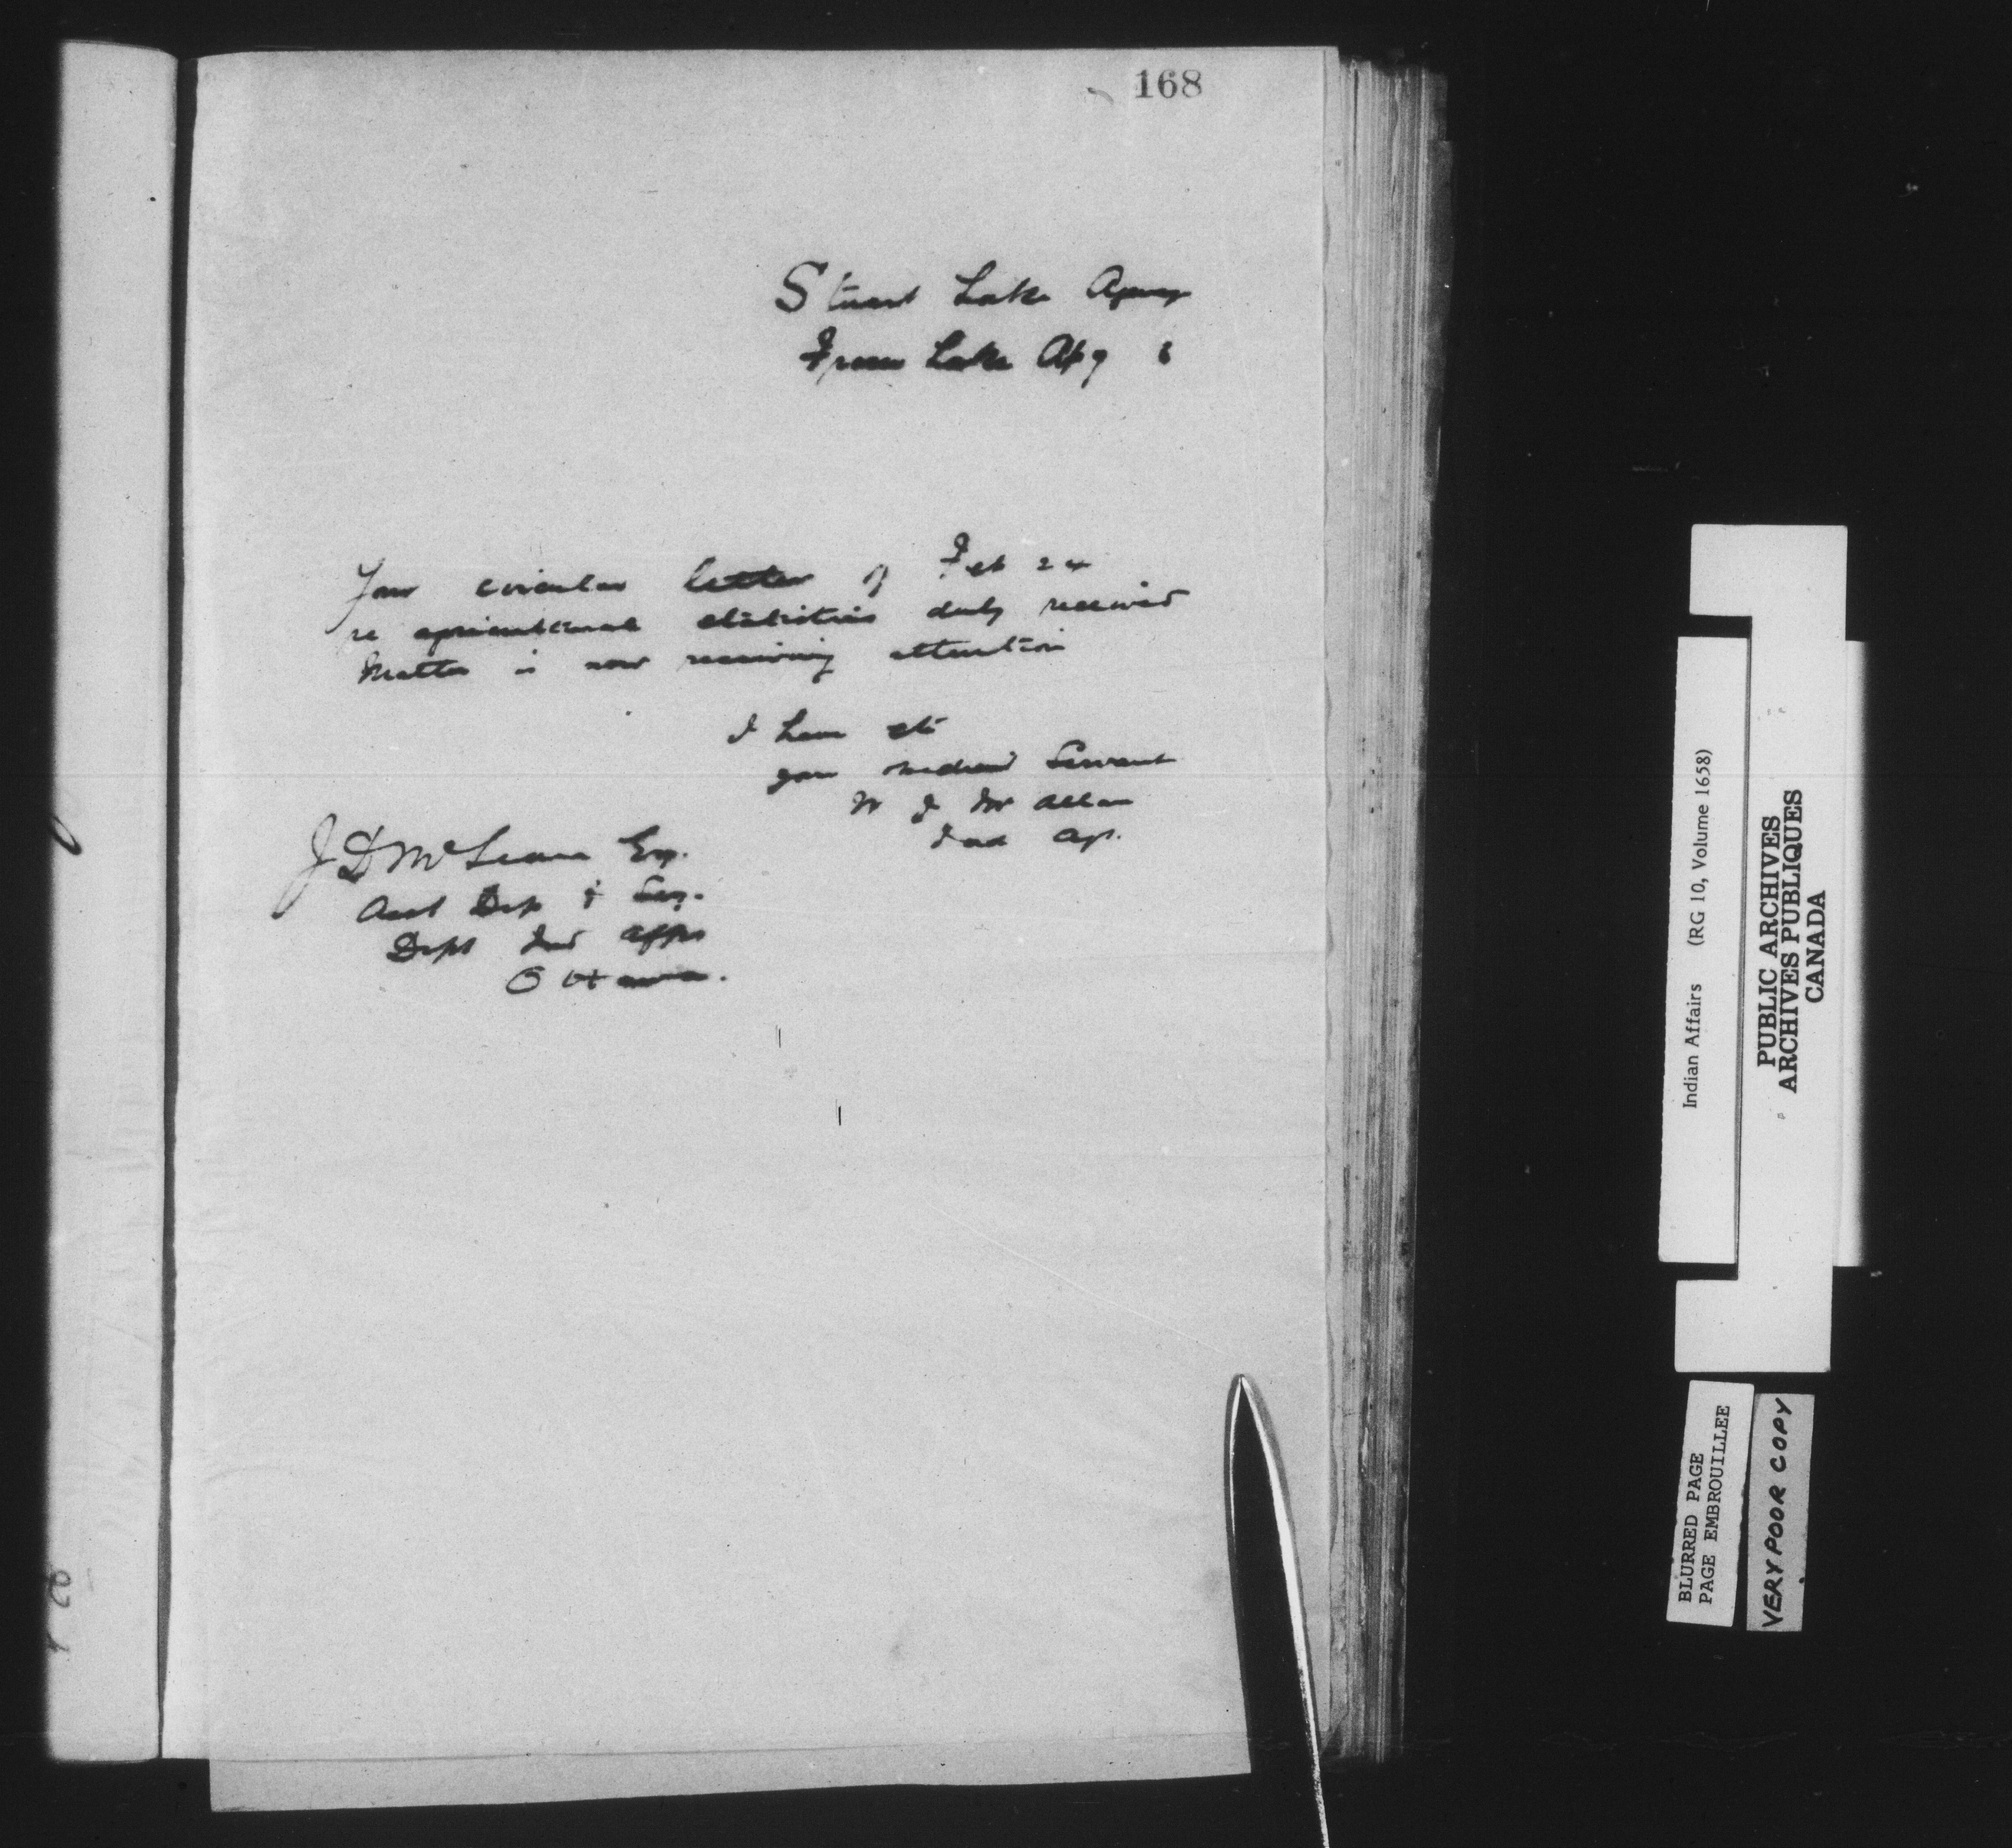 168
Stuart Lake Agency
Fraser Lake
Your circular letter of Feb 24
re agricultural statistics duly received
Matter is now receiving attention
I have etc
your obedient Servant
W J McAllan
Ind Agt.
J D McLean Esq.
Asst Dep & Secy.
Dept Ind Affrs
Ottawa.
Indian Affairs (RG 10, Volume 1658)
PUBLIC ARCHIVES
ARCHIVES PUBLIQUES
CANADA
BLURRED PAGE
PAGE EMBROUILLEE
VERY POOR COPY